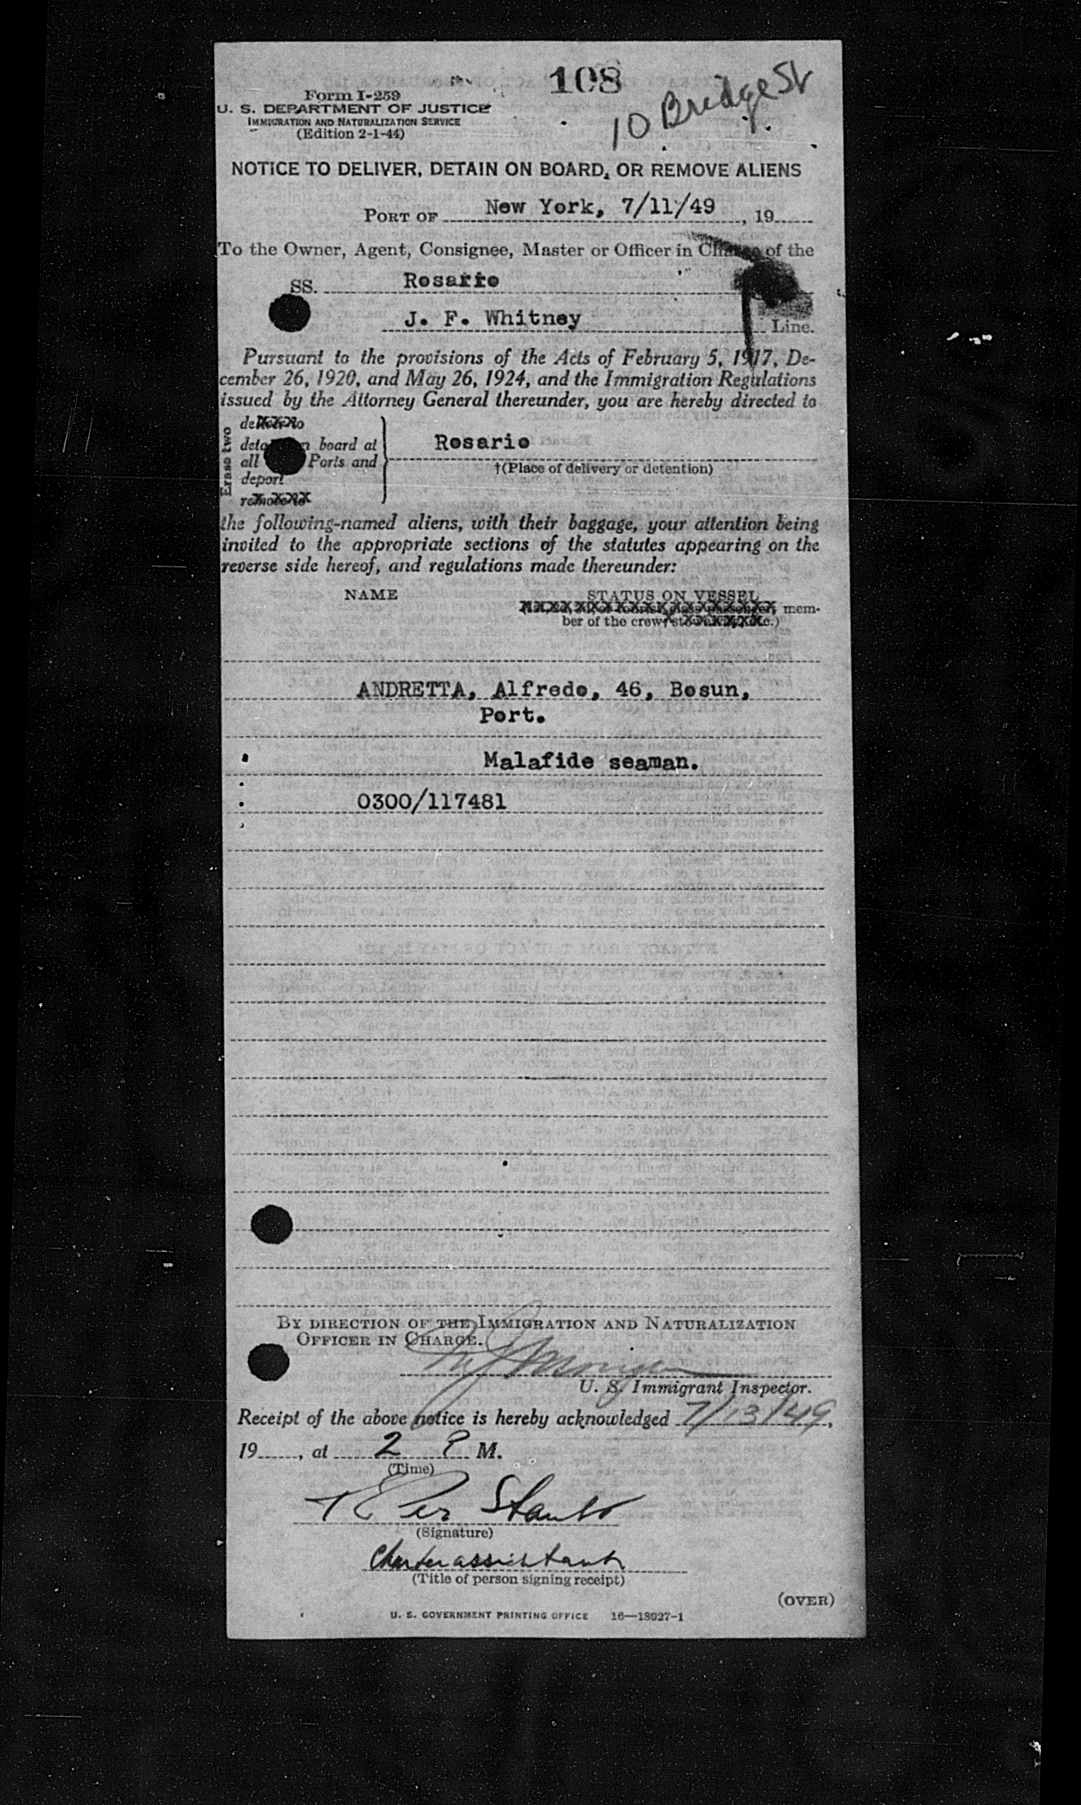 108
10 Bridge St
Form I-259
U. S. DEPARTMENT OF JUSTICE
IMMIGRATION AND NATURALIZATION SERVICE
(Edition 2-1-44)
NOTICE TO DELIVER, DETAIN ON BOARD, OR REMOVE ALIENS
PORT OF New York, 7/11/49, 19
To the Owner, Agent, Consignee, Master or Officer in Charge of the
SS. Rosario
J. F. Whitney Line.
Pursuant to the provisions of the Acts of February 5, 1917, De-
cember 26, 1920, and May 26, 1924, and the Immigration Regulations
issued by the Attorney General thereunder, you are hereby directed to
Erase two
deliver to
board at
all Ports and
deport
remove to
Rosario
†(Place of delivery or detention)
the following-named aliens, with their baggage, your attention being
invited to the appropriate sections of the statutes appearing on the
reverse side hereof, and regulations made thereunder:
NAME STATUS ON VESSEL
mem-
ber of the crew
ANDRETTA, Alfredo, 46, Bosun,
Port.
Malafide seaman.
0300/117481
BY DIRECTION OF THE IMMIGRATION AND NATURALIZATION
OFFICER IN CHARGE.
U. S. Immigrant Inspector.
Receipt of the above notice is hereby acknowledged 7/13/49,
19, at 2 P M.
(Time)
(Signature)
(Title of person signing receipt)
(OVER)
U. S. GOVERNMENT PRINTING OFFICE 16—18927-1